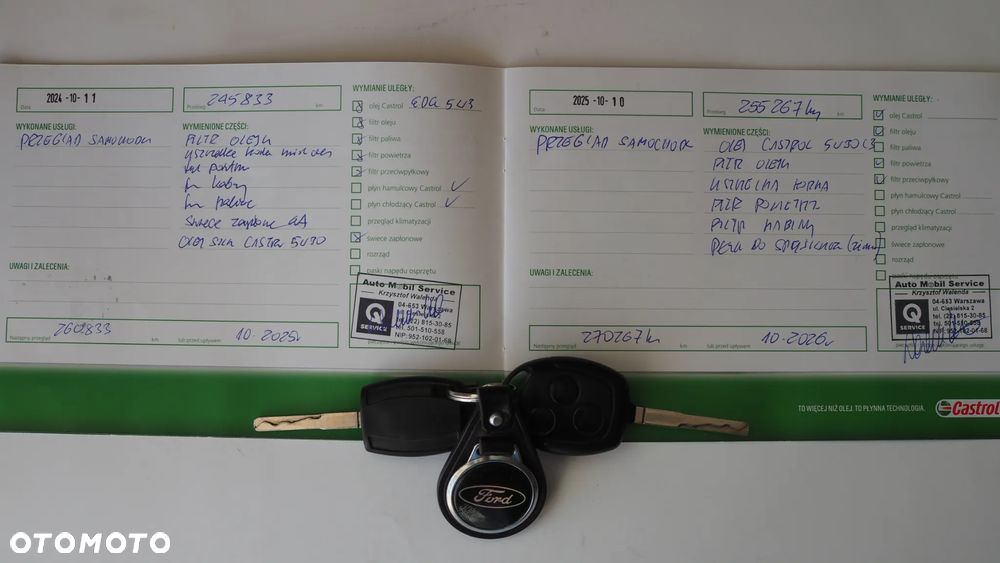 Data 2024-10-11
Przebieg 245833 km
WYKONANE USŁUGI:
PRZEGLĄD SAMOCHODU
WYMIENIONE CZĘŚCI:
FILTR OLEJU
uszczelka korka
świece zapłonowe
OLEJ CASTROL 5W30
WYMIANIE ULEGŁY:
olej Castrol EDGE 5W3
filtr oleju
filtr paliwa
filtr powietrza
filtr przeciwpyłkowy
płyn hamulcowy Castrol
płyn chłodzący Castrol
przegląd klimatyzacji
świece zapłonowe
rozrząd
paski napędu osprzętu
UWAGI I ZALECENIA:
Auto Mobil Service
Krzysztof Walenda
04-653 Warszawa
Q SERVICE
(22) 815-30-85
tel. 501-510-558
NIP: 952-102-01-68
Następny przegląd 260833 km
lub przed upływem 10.2025r
Data 2025-10-10
Przebieg 255267 km
WYKONANE USŁUGI:
PRZEGLĄD SAMOCHODU
WYMIENIONE CZĘŚCI:
OLEJ CASTROL 5W30 C3
FILTR OLEJU
USZCZELKA KORKA
FILTR POWIETRZA
FILTR KABINY
WYMIANIE ULEGŁY:
olej Castrol
filtr oleju
filtr paliwa
filtr powietrza
filtr przeciwpyłkowy
płyn hamulcowy Castrol
płyn chłodzący Castrol
przegląd klimatyzacji
świece zapłonowe
rozrząd
paski napędu osprzętu
UWAGI I ZALECENIA:
Auto Mobil Service
Krzysztof Walenda
04-653 Warszawa
ul. Ciesielska 2
tel. (22) 815-30-85
tel. 501-510-558
NIP: 952-102-01-68
Q SERVICE
Następny przegląd 270267 km
lub przed upływem 10.2026r
TO WIĘCEJ NIŻ OLEJ. TO PŁYNNA TECHNOLOGIA.
Castrol
Ford
OTOMOTO